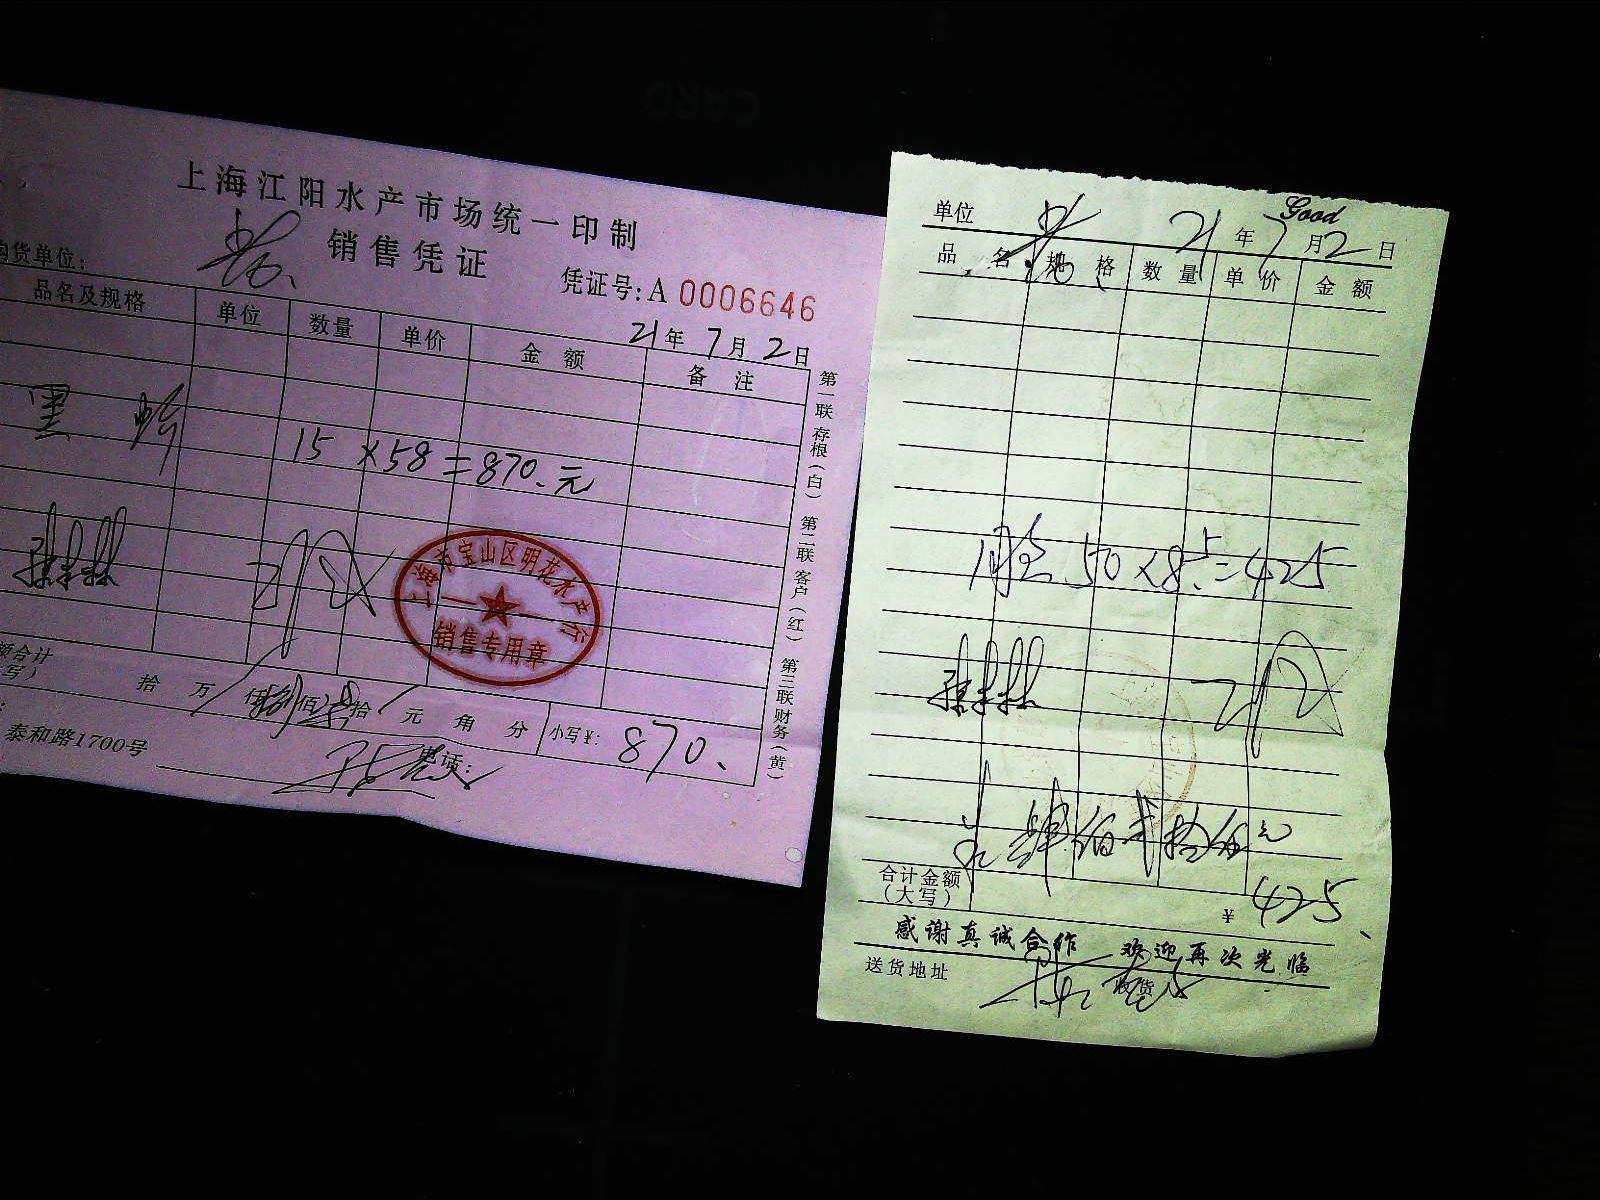 上海江阳水产市场统一印制
销售凭证
购货单位:
凭证号: A 0006646
21年 7月 2日
品名及规格 单位 数量 单价 金额 备注
黑 15 ×58 =870.元
上海市宝山区明花水产行
销售专用章
额合计
写)
拾 万 仟 捌佰 柒拾 元 角 分 小写¥: 870.
泰和路1700号 电话:
第一联 存根(白) 第二联 客户(红) 第三联 财务(黄)
Good
单位 21年 7月 2日
品名 规格 数量 单价 金额
50×8.5=425
肆佰贰拾伍元
合计金额
(大写)
¥ 425
感谢真诚合作 欢迎再次光临
送货地址 收货
CARD